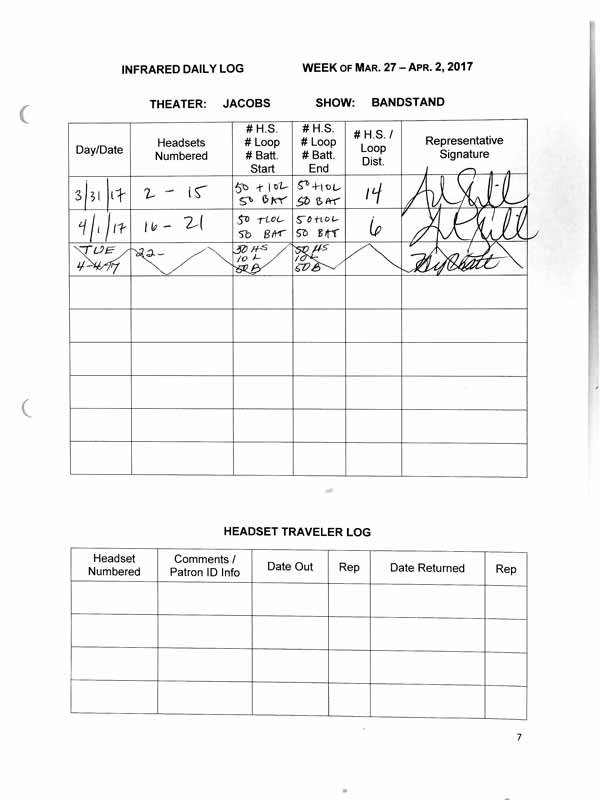 INFRARED DAILY LOG WEEK OF MAR. 27 – APR. 2, 2017
THEATER: JACOBS SHOW: BANDSTAND
Day/Date Headsets Numbered # H.S. # Loop # Batt. Start # H.S. # Loop # Batt. End # H.S. / Loop Dist. Representative Signature
3/31/17 2 - 15 50 + 10L 50 BAT 50+10L 50 BAT 14
4/1/17 16 - 21 50 +10L 50 BAT 50+10L 50 BAT 6
TUE 4-4-17 22- 50 HS 10 L 50 B 50 HS 10 L 50 B
HEADSET TRAVELER LOG
Headset Numbered Comments / Patron ID Info Date Out Rep Date Returned Rep
7